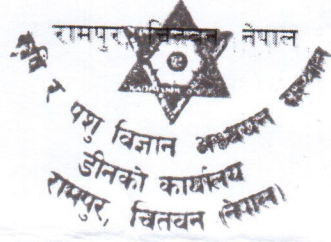 रामपुर, चितवन नेपाल
कृषि र पशु विज्ञान अध्ययन संस्थान
डीनको कार्यालय
रामपुर, चितवन (नेपाल)